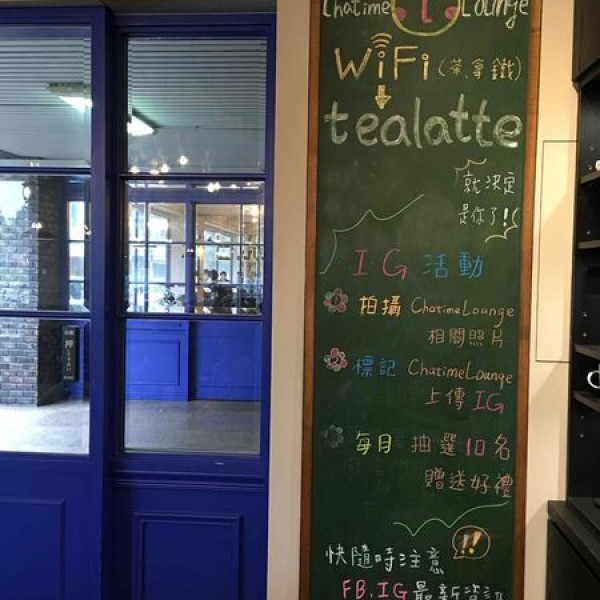 Chatime Lounge
WiFi (茶.拿鐵)
tealatte
就決定
是你了!!
IG 活動
1 拍攝 ChatimeLounge
相關照片
2 標記 ChatimeLounge
上傳 IG
每月 抽選10名
贈送好禮
快隨時注意 !!
FB.IG最新資訊